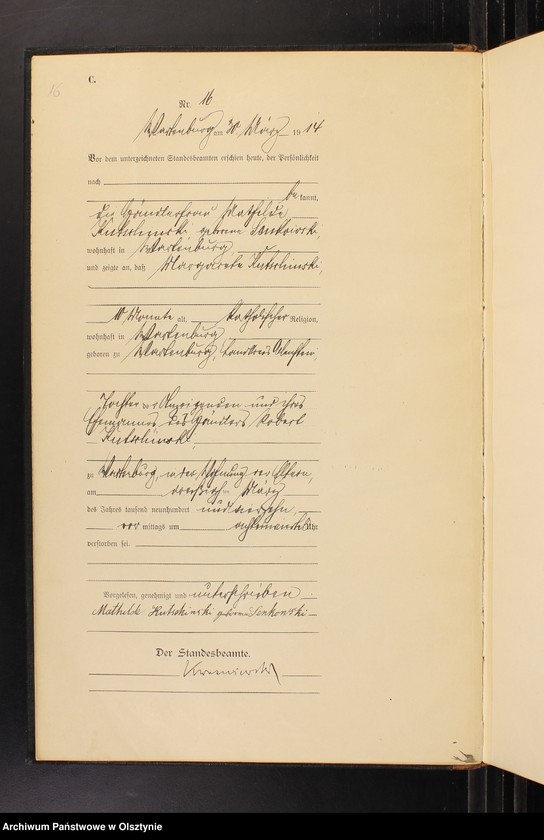 C.
16
Nr. 16
Wartenburg am 30. März 1914
Vor dem unterzeichneten Standesbeamten erschien heute, der Persönlichkeit
nach
bekannt,
die Händlerfrau Mathilde
Kutschinski geborene Senkowski,
wohnhaft in Wartenburg,
und zeigte an, daß Margarete Kutschinski,
10 Monate alt, katholischer Religion,
wohnhaft in Wartenburg
geboren zu Wartenburg, Landkreis Allenstein
Tochter der Anzeigenden und ihres
Ehemannes, des Händlers, Robert
Kutschinski,
zu Wartenburg, in der Wohnung der Eltern,
am dreißigsten März
des Jahres tausend neunhundert und vierzehn,
vor mittags um Uhr
verstorben sei.
Vorgelesen, genehmigt und unterschrieben
Mathilde Kutschinski geborene Senkowski
Der Standesbeamte.
Archiwum Państwowe w Olsztynie